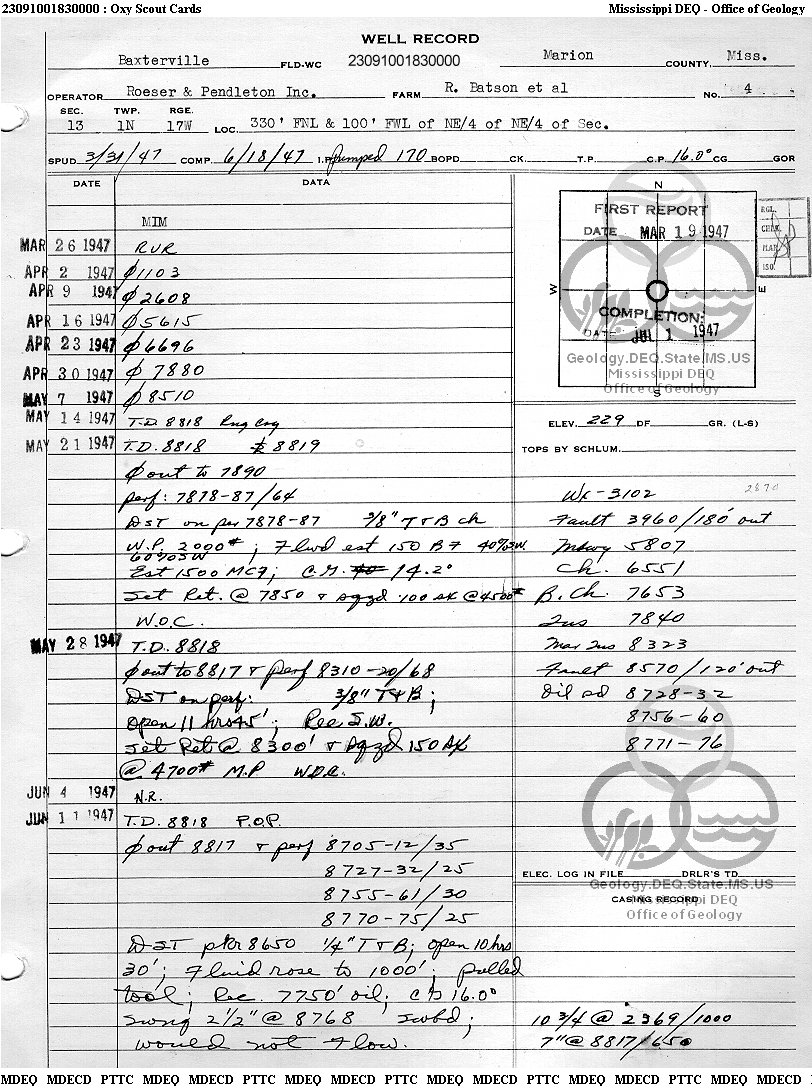 23091001830000 : Oxy Scout Cards
Mississippi DEQ - Office of Geology
WELL RECORD
Baxterville FLD-WC 23091001830000 Marion COUNTY, Miss.
OPERATOR Roeser & Pendleton Inc. FARM R. Batson et al No. 4
SEC. TWP. RGE.
13 1N 17W LOC. 330' FNL & 100' FWL of NE/4 of NE/4 of Sec.
SPUD 3/31/47 COMP. 6/18/47 I.P. Pumped 170 BOPD CK. T.P. C.P. 16.0° CG GOR
DATE DATA
MIM
MAR 26 1947 RUR
APR 2 1947 ∅1103
APR 9 1947 ∅2608
APR 16 1947 ∅5615
APR 23 1947 ∅6696
APR 30 1947 ∅ 7880
MAY 7 1947 ∅8510
MAY 14 1947 T.D. 8818 Rng Csg
MAY 21 1947 T.D. 8818 8819
∅ out to 7890
perf: 7878-87/64
DST on per 7878-87 3/8" T & B ch
W.P. 2000#; Flwd est 150 BF 40% SW.
60% SW
Est 1500 MCF; C.G. 14.2°
Set Ret. @ 7850 & sqzd 100 sx @ 4500#
W.O.C.
MAY 28 1947 T.D. 8818
∅ out to 8817 & perf 8310-20/68
DST on perf: 3/8" T & B;
open 11 hrs 45'; Rec S.W.
Set Ret @ 8300' & sqzd 150 sx
@ 4700# M.P W.O.C.
JUN 4 1947 N.R.
JUN 11 1947 T.D. 8818 P.O.P.
∅ out 8817 & perf 8705-12/35
8727-32/25
8755-61/30
8770-75/25
DST pkr 8650 1/4" T & B; open 10 hrs
30'; Fluid rose to 1000'; pulled
tool; Rec. 7750' oil; 16.0°
Swng 2 1/2" @ 8768 swbd;
would not flow.
N
FIRST REPORT
DATE MAR 19 1947
W E
COMPLETION:
DATE JUL 1 1947
S
RGL.
CHLK.
PLAN
ISO.
Geology.DEQ.State.MS.US
Mississippi DEQ
Office of Geology
ELEV. 229 DF GR. (L-S)
TOPS BY SCHLUM.
2870
Wx - 3102
Fault 3960/180' out
Mtwy 5807
Ch. 6551
B. Ch. 7653
Tus 7840
Mar Tus 8323
Fault 8570/120' out
Oil sd 8728-32
8756-60
8771-76
ELEC. LOG IN FILE DRLR'S TD
Geology.DEQ.State.MS.US
CASING RECORD
Mississippi DEQ
Office of Geology
10 3/4 @ 2369/1000
7" @ 8817/650
MDEQ MDECD PTTC MDEQ MDECD PTTC MDEQ MDECD PTTC MDEQ MDECD PTTC MDEQ MDECD PTTC MDEQ MDECD